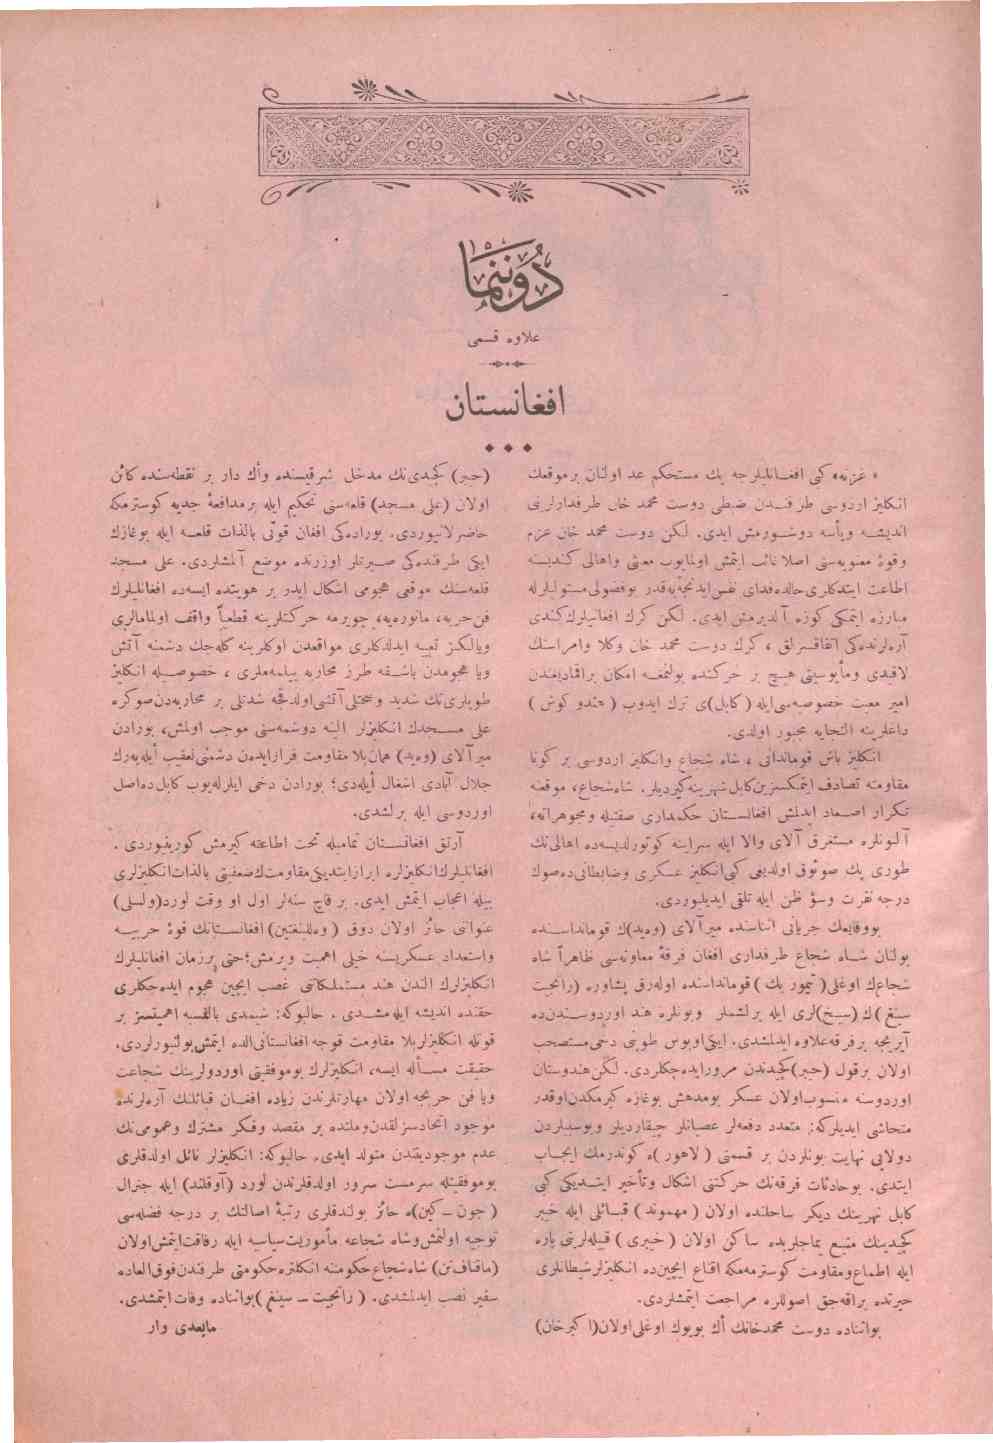 دوننما
علاوه قسمی
افغانستان
« غزنه » كبی افغـانلیلرجه پك مستحكم عد اولنان برموقعك
انكلیز اردوسی طرفـندن ضبطی دوست محمد خان طرفدارلرینی
اندیشـه ویأسه دوشـورمش ایدی. لكن دوست محمد خان عزم
وقوۀ معنویه‌سنی اصلا غائب ایتمش اولمایوب معیتی واهالی كندیسـنه
اطاعت ایتدكلری حالده فدای نفس ایدنجه‌یه قدر بو فضولی مستولیلرله
مبارزه ایتمكی كوزه آلدیرمش ایدی. لكن كرك افغانلیلرك كندی
آره‌لرنده‌كی اتفاقسزلق ، كرك دوست محمد خان وكلا وامراسنك
لاقیدی ومأیوسیتی هیـچ بر حركتده بولنمغـه امكان براقمادیغندن
امیر معیت خصوصیه‌سی ایله (كابل)ی ترك ایدوب ( هندو كوش )
داغلرینه التجایه مجبور اولدی.
انكلیز باش قوماندانی ، شاه شجاع وانكلیز اردوسی بر كونا
مقاومته تصادف ایتمكسزین كابل شهرینه كیردیلر. شاه شجاع، موقعنه
تكرار اصـعاد ایدلمش افغانسـتان حكمداری صفتیله ومجوهراته،
آلتونلره مستغرق آلای والا ایله سراینه كوتورلدیسه‌ده اهالی‌نك
طوری پك صوئوق اولدیغی كبی انكلیز عسكری وضابطانی ده صوك
درجه نفرت وسوء ظن ایله تلقی ایدیلیوردی.
بووقایعك جریانی اثناسنده میرآلای (وه‌ید)ك قومانداسـنده
بولنان شـاه شجاع طرفداری افغان فرقۀ معاونه‌سی ظاهراً شاه
شجاعك اوغلی ( تیمور بك ) قومانداسنده اوله‌رق پشاوره (رانجیت
سینغ )ك (سیـخ)لری ایله برلشملر وبونلره هند اوردوسـندن ده
آیریجه بر فرقه علاوه ایدلمشدی. ایكی اوبوس طوپنی دخی مستصحب
اولان برقول (خیبر) كچیدندن مرور ایده‌جكلردی. لكن هندوستان
اوردوسنه منسوب اولان عسكر بو مدهش بوغازه كیرمكدن اوقدر
متحاشی ایدیلركه: متعدد دفعه‌لر عصیانلر چیقاردیلر وبوسببلردن
دولایی نهایت بونلردن بر قسمنی ( لاهور )ه كوندرمك ایجـاب
ایتدی. بوحادثات فرقه‌نك حركتنی اشكال وتأخیر ایتـدیكی كبی
كابل نهرینك دیكر ساحلنده اولان ( مهموند ) قبـائلی ایله خیبر
كچیدینك منبع یماجلرنده ساكن اولان ( خیبری ) قبیله‌لرینی پاره
ایله اطماع ومقاومت كوسترمه‌مكه اقناع ایچین ده انكلیزلر شیطانلری
حیرتده براقه‌جق اصوللره مراجعت ایتمشلردی.
بواثناده دوست محمدخانك اك بویوك اوغلی اولان (اكبرخان)
(خیبر) كچیدی‌نك مدخل شرقیسنده واك دار بر نقطه‌سنده كائن
اولان (علی مسـجد) قلعه‌سنی تحكیم ایله بر مدافعۀ جدیه كوسترمكه
حاضرلانیوردی. بوراده‌كی افغان قوتی بالذات قلعـه ایله بوغازك
ایكی طرفنده‌كی صـیرتلر اوزرنده موضع آلمشلردی. علی مسجد
قلعه‌سنك موقعی هجومی اشكال ایدر بر هویتده ایسه‌ده افغانلیلرك
فن حربه، مانوره‌یه، چویرمه حركتلرینه قطعیاً واقف اولمامالری
ویالكـز تعبیه ایدلدكلری مواقعدن اوكلرینه كله‌جك دشمنه آتش
ویا هجومدن باشـقه طرز محاربه بیلمه‌ملری ، خصوصـیله انكلیز
طوپلری‌نك شدید وصحتلی آتشی اولدقجه شدتلی بر محاربه‌دن صوكره
علی مسـجدك انكلیزلر الینه دوشمه‌سنی موجب اولمش، بورادن
میرآلای (وه‌ید) همان بلا مقاومت فرار ایدن دشمنی تعقیب ایله‌یه‌رك
جلال آبادی اشغال أیله‌دی؛ بورادن دخی ایلرله‌یوب كابل ده اصل
اوردوسی ایله برلشدی.
آرتق افغانسـتان تمامیله تحت اطاعته كیرمش كورینیوردی .
افغانلیلرك انكلیزلره ابراز ایتدیكی مقاومتك ضعفیتی بالذات انكلیزلری
بیله اعجاب ایتمش ایدی. بر قاچ سنه‌لر اول او وقت لورد (ولسلی)
عنوانی حائز اولان دوق ( وه‌للینغتین) افغانسـتانك قوۀ حربیـه
واستعداد عسكریسنه خیلی اهمیت ویرمش؛ حتی بر زمان افغانلیلرك
انكلیزلرك الندن هند مستملكاتنی غصب ایچین هجوم ایده‌جكلری
حقنده اندیشه ایله‌مشـدی . حالبوكه: شیمدی بالنسبه اهمیتسز بر
قوتله انكلیزلر بلا مقاومت قوجه افغانستانی الده ایتمش بولنیورلردی.
حقیقت مسـأله ایسه، انكلیزلرك بوموفقیتی اوردولرینك شجاعت
ویا فن حربجه اولان مهارتلرندن زیاده افغـان قبائلنك آره‌لرنده
موجود اتحادسزلقدن وملتده بر مقصد وفكر مشترك وعمومی‌نك
عدم موجودیتندن متولد ایدی. حالبوكه: انكلیزلر نائل اولدقلری
بوموفقیتله سرمست سرور اولدقلرندن لورد (آوقلند) ایله جنرال
( جون ــ كین)ه حائز بولندقلری رتبۀ اصالتك بر درجه فضله‌سی
توجیه اولنمش وشاه شجاعه مأموریت سیاسیه ایله رفاقت ایتمش اولان
(ماقناقـتن) شاه شجاع حكومتنه انكلتره حكومتی طرفندن فوق العاده
سفیر نصب ایدلمشدی. ( رانجیت ــ سینغ ) بواثناده وفات ایتمشدی.
مابعدی وار